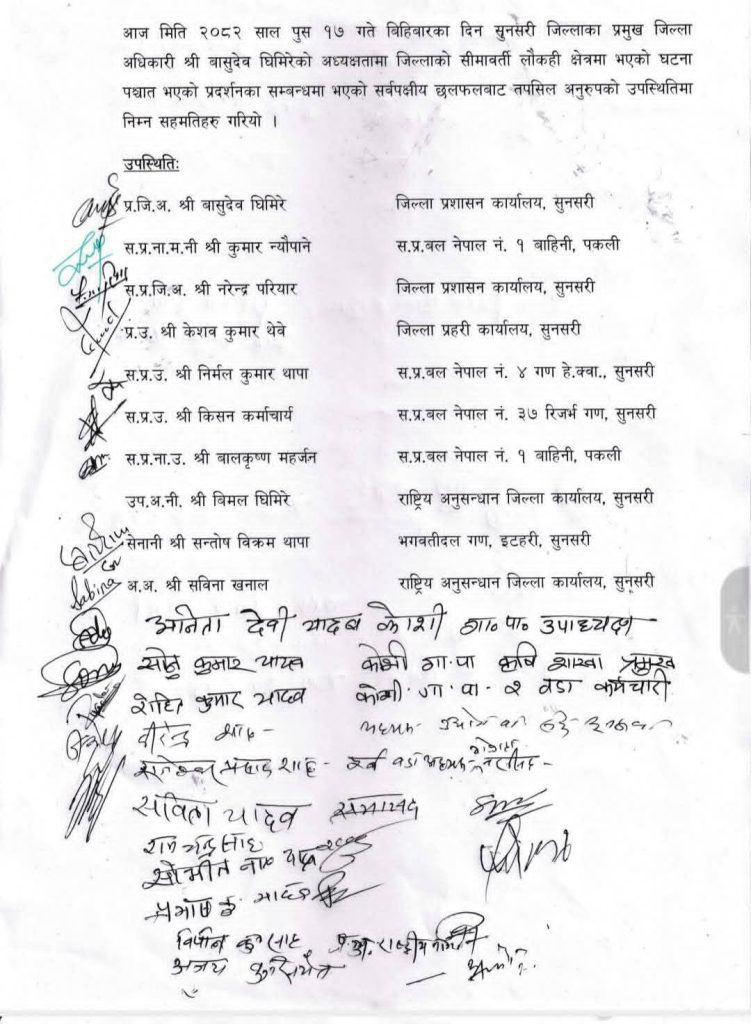 आज मिति २०८२ साल पुस १७ गते बिहिबारका दिन सुनसरी जिल्लाका प्रमुख जिल्ला
अधिकारी श्री बासुदेव घिमिरेको अध्यक्षतामा जिल्लाको सीमावर्ती लौकही क्षेत्रमा भएको घटना
पश्चात भएको प्रदर्शनका सम्बन्धमा भएको सर्वपक्षीय छलफलबाट तपसिल अनुरुपको उपस्थितिमा
निम्न सहमतिहरु गरियो ।
उपस्थितिः
प्र.जि.अ. श्री बासुदेव घिमिरे जिल्ला प्रशासन कार्यालय, सुनसरी
स.प्र.ना.म.नी श्री कुमार न्यौपाने स.प्र.बल नेपाल नं. १ बाहिनी, पकली
स.प्र.जि.अ. श्री नरेन्द्र परियार जिल्ला प्रशासन कार्यालय, सुनसरी
प्र.उ. श्री केशव कुमार थेवे जिल्ला प्रहरी कार्यालय, सुनसरी
स.प्र.उ. श्री निर्मल कुमार थापा स.प्र.बल नेपाल नं. ४ गण हे.क्वा., सुनसरी
स.प्र.उ. श्री किसन कर्माचार्य स.प्र.बल नेपाल नं. ३७ रिजर्भ गण, सुनसरी
स.प्र.ना.उ. श्री बालकृष्ण महर्जन स.प्र.बल नेपाल नं. १ बाहिनी, पकली
उप.अ.नी. श्री बिमल घिमिरे राष्ट्रिय अनुसन्धान जिल्ला कार्यालय, सुनसरी
सेनानी श्री सन्तोष विक्रम थापा भगवतीदल गण, इटहरी, सुनसरी
Sabina अ.अ. श्री सविना खनाल राष्ट्रिय अनुसन्धान जिल्ला कार्यालय, सुनसरी
अनिता देवी यादव कोशी गा० पा० उपाध्यक्ष
सोनु कुमार यादव कोशी गा.पा कृषि शाखा प्रमुख
रोहित कुमार यादव कोशी गा. पा - २ वडा कर्मचारी
वीरेन्द्र साह
प्रसाद शाह
सविता यादव
अजय